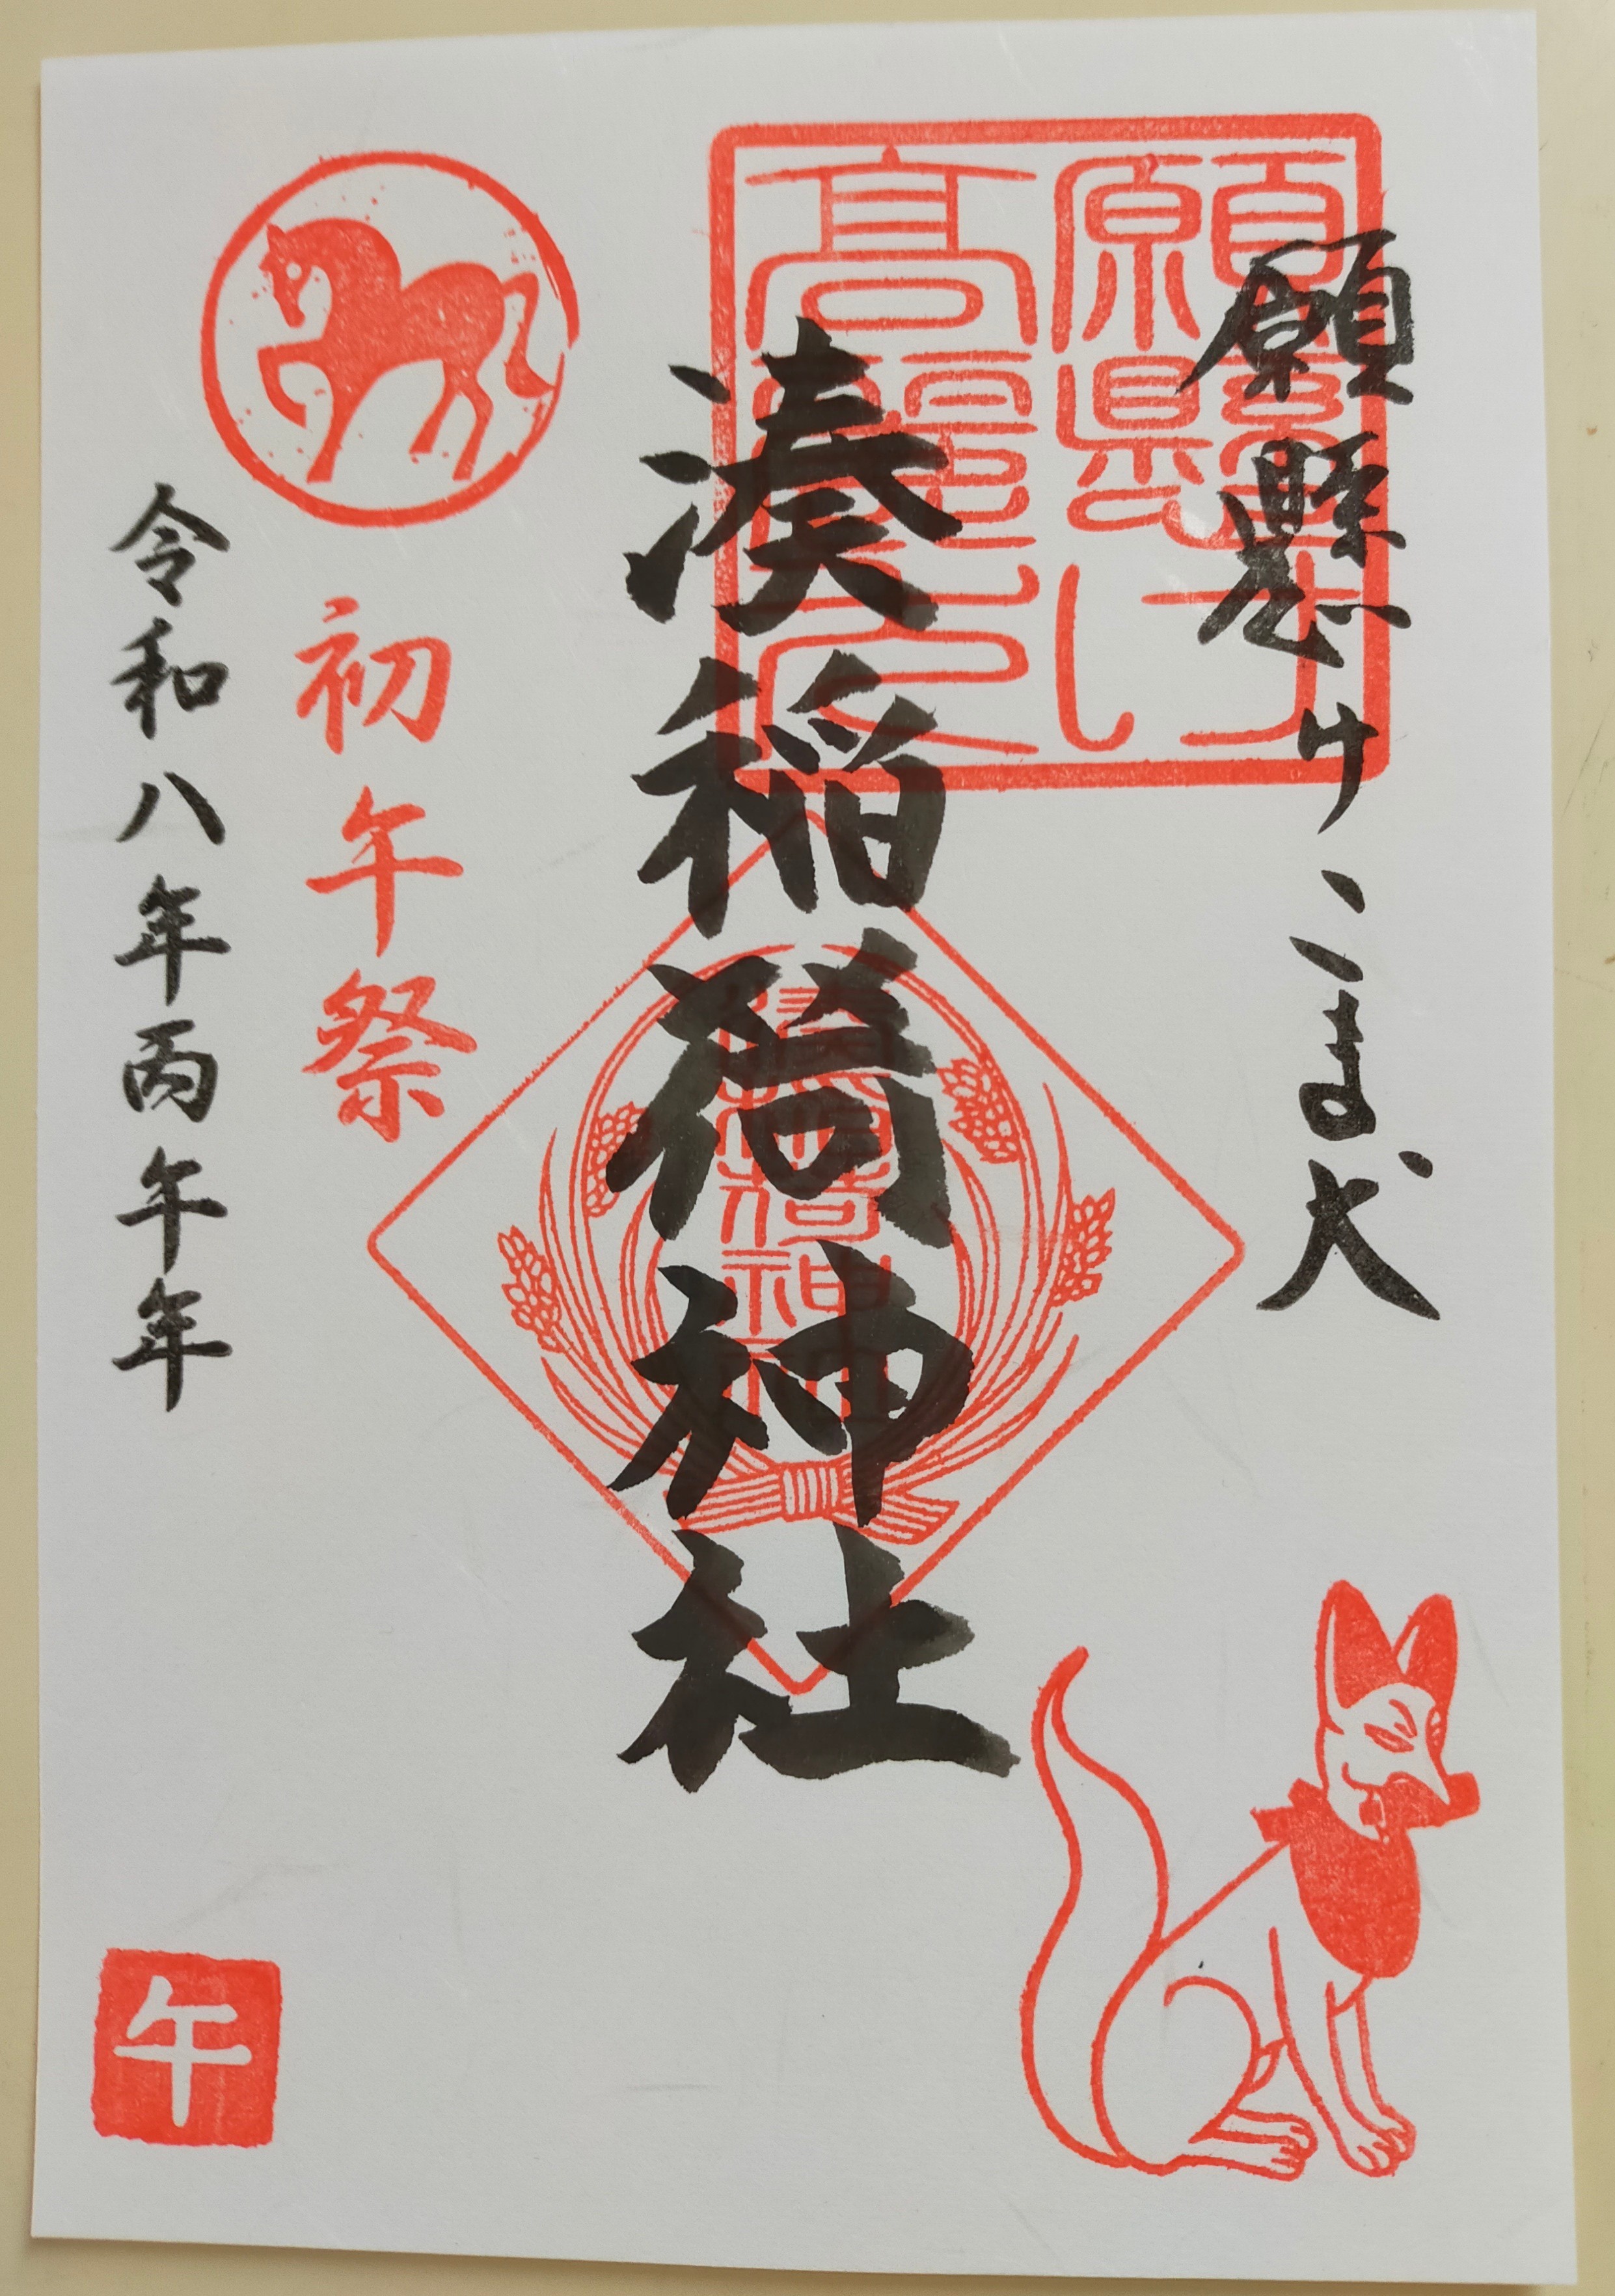 願懸けこま犬
願懸け
高麗犬
湊稲荷神社
湊稲荷神社
初午祭
令和八年丙午年
午